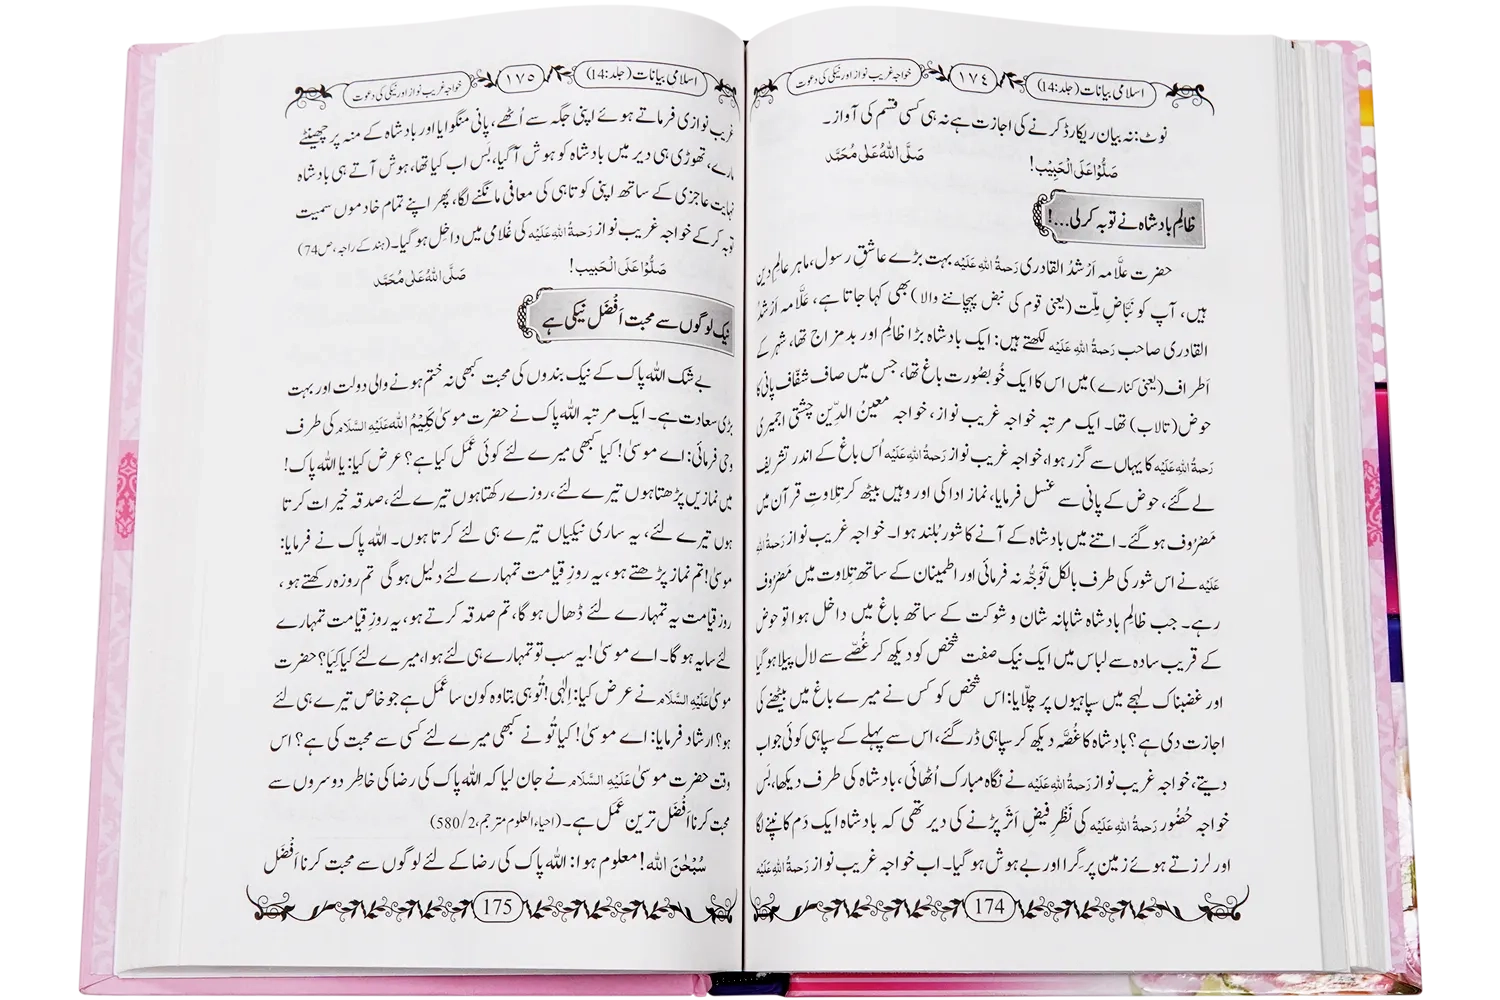 اسلامی بیانات (جلد:14)
١٧٤
خواجہ غریب نواز اور نیکی کی دعوت
نوٹ: نہ بیان ریکارڈ کرنے کی اجازت ہے نہ ہی کسی قسم کی آواز۔
صَلُّوْا عَلَی الْحَبِیْب! صَلَّی اللہُ عَلٰی مُحَمَّد
ظالِم بادشاہ نے توبہ کرلی...!
حضرت علّامہ اَرْشدُ القادری رَحمۃُ اللہِ عَلَیْہ بہت بڑے عاشقِ رسول، ماہر عالِمِ دین
ہیں، آپ کو نَبّاضِ مِلّت (یعنی قوم کی نبض پہچاننے والا) بھی کہا جاتا ہے، عَلّامہ اَرْشدُ
القادری صاحب رَحمۃُ اللہِ عَلَیْہ لکھتے ہیں: ایک بادشاہ بڑا ظالِم اور بد مزاج تھا، شہر کے
اَطراف (یعنی کنارے) میں اس کا ایک خُوبصُورت باغ تھا، جس میں صاف شفّاف پانی کا
حوض (تالاب) تھا۔ ایک مرتبہ خواجہ غریب نواز، خواجہ معینُ الدِّین چشتی اجمیری
رَحمۃُ اللہِ عَلَیْہ کا یہاں سے گزر ہوا، خواجہ غریب نواز رَحمۃُ اللہِ عَلَیْہ اُس باغ کے اندر تشریف
لے گئے، حوض کے پانی سے غسل فرمایا، نماز ادا کی اور وہیں بیٹھ کر تِلاوتِ قرآن میں
مَصْرُوف ہو گئے۔ اتنے میں بادشاہ کے آنے کا شور بُلند ہوا۔ خواجہ غریب نواز رَحمۃُ اللہِ
عَلَیْہ نے اس شور کی طرف بالکل تَوَجُّہ نہ فرمائی اور اطمینان کے ساتھ تِلاوت میں مَصْرُوف
رہے۔ جب ظالِم بادشاہ شاہانہ شان و شوکت کے ساتھ باغ میں داخل ہوا تو حوض
کے قریب سادہ سے لباس میں ایک نیک صفت شخص کو دیکھ کر غُصّے سے لال پیلا ہو گیا
اور غضبناک لہجے میں سپاہیوں پر چِلّایا: اس شخص کو کس نے میرے باغ میں بیٹھنے کی
اجازت دی ہے؟ بادشاہ کا غُصّہ دیکھ کر سپاہی ڈر گئے، اس سے پہلے کے سپاہی کوئی جواب
دیتے، خواجہ غریب نواز رَحمۃُ اللہِ عَلَیْہ نے نگاہ مبارک اُٹھائی، بادشاہ کی طرف دیکھا، بَس
خواجہ حُضُور رَحمۃُ اللہِ عَلَیْہ کی نَظَرِ فیضِ اَثَر پڑنے کی دیر تھی کہ بادشاہ ایک دَم کانپنے لگا
اور لرزتے ہوئے زمین پر گِرا اور بے ہوش ہو گیا۔ اب خواجہ غریب نواز رَحمۃُ اللہِ عَلَیْہ
174
اسلامی بیانات (جلد:14)
١٧٥
خواجہ غریب نواز اور نیکی کی دعوت
غریب نوازی فرماتے ہوئے اپنی جگہ سے اُٹھے، پانی منگوایا اور بادشاہ کے منہ پر چھینٹے
مارے، تھوڑی ہی دیر میں بادشاہ کو ہوش آگیا، بَس اب کیا تھا، ہوش آتے ہی بادشاہ
نہایت عاجزی کے ساتھ اپنی کوتاہی کی معافی مانگنے لگا، پھر اپنے تمام خادموں سمیت
توبہ کر کے خواجہ غریب نواز رَحمۃُ اللہِ عَلَیْہ کی غُلامی میں داخِل ہو گیا۔ (ہند کے راجہ، ص74)
صَلُّوْا عَلَی الْحَبِیب! صَلَّی اللہُ عَلٰی مُحَمَّد
نیک لوگوں سے محبت اَفْضَل نیکی ہے
بے شک اللہ پاک کے نیک بندوں کی محبت کبھی نہ ختم ہونے والی دولت اور بہت
بڑی سعادت ہے۔ ایک مرتبہ اللہ پاک نے حضرت موسیٰ کَلِیْمُ اللہ عَلَیْہِ السَّلَام کی طرف
وحی فرمائی: اے موسیٰ! کیا کبھی میرے لئے کوئی عَمَل کیا ہے؟ عرض کیا: یا اللہ پاک!
میں نمازیں پڑھتا ہوں تیرے لئے، روزے رکھتا ہوں تیرے لئے، صدقہ خیرات کرتا
ہوں تیرے لئے، یہ ساری نیکیاں تیرے ہی لئے کرتا ہوں۔ اللہ پاک نے فرمایا:
موسیٰ! تم نماز پڑھتے ہو، یہ روزِ قیامت تمہارے لئے دلیل ہوگی تم روزہ رکھتے ہو،
روزِ قیامت یہ تمہارے لئے ڈھال ہو گا، تم صدقہ کرتے ہو، یہ روزِ قیامت تمہارے
لئے سایہ ہو گا۔ اے موسیٰ! یہ سب تو تمہارے ہی لئے ہوا، میرے لئے کیا کِیَا؟ حضرت
موسیٰ عَلَیْہِ السَّلَام نے عرض کیا: اِلٰہی! تُو ہی بتا وہ کون سا عَمَل ہے جو خاص تیرے ہی لئے
ہو؟ ارشاد فرمایا: اے موسیٰ! کیا تُو نے کبھی میرے لئے کسی سے محبت کی ہے؟ اس
وقت حضرت موسیٰ عَلَیْہِ السَّلَام نے جان لیا کہ اللہ پاک کی رضا کی خاطِر دوسروں سے
محبت کرنا اَفْضَل ترین عَمَل ہے۔ (احیاء العلوم مترجم، 2/580)
سُبْحٰنَ اللہ! معلوم ہوا: اللہ پاک کی رضا کے لئے لوگوں سے محبت کرنا اَفْضَل
175